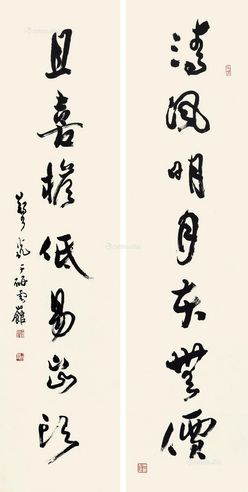 清風明月本無價
且喜檐低易出頭